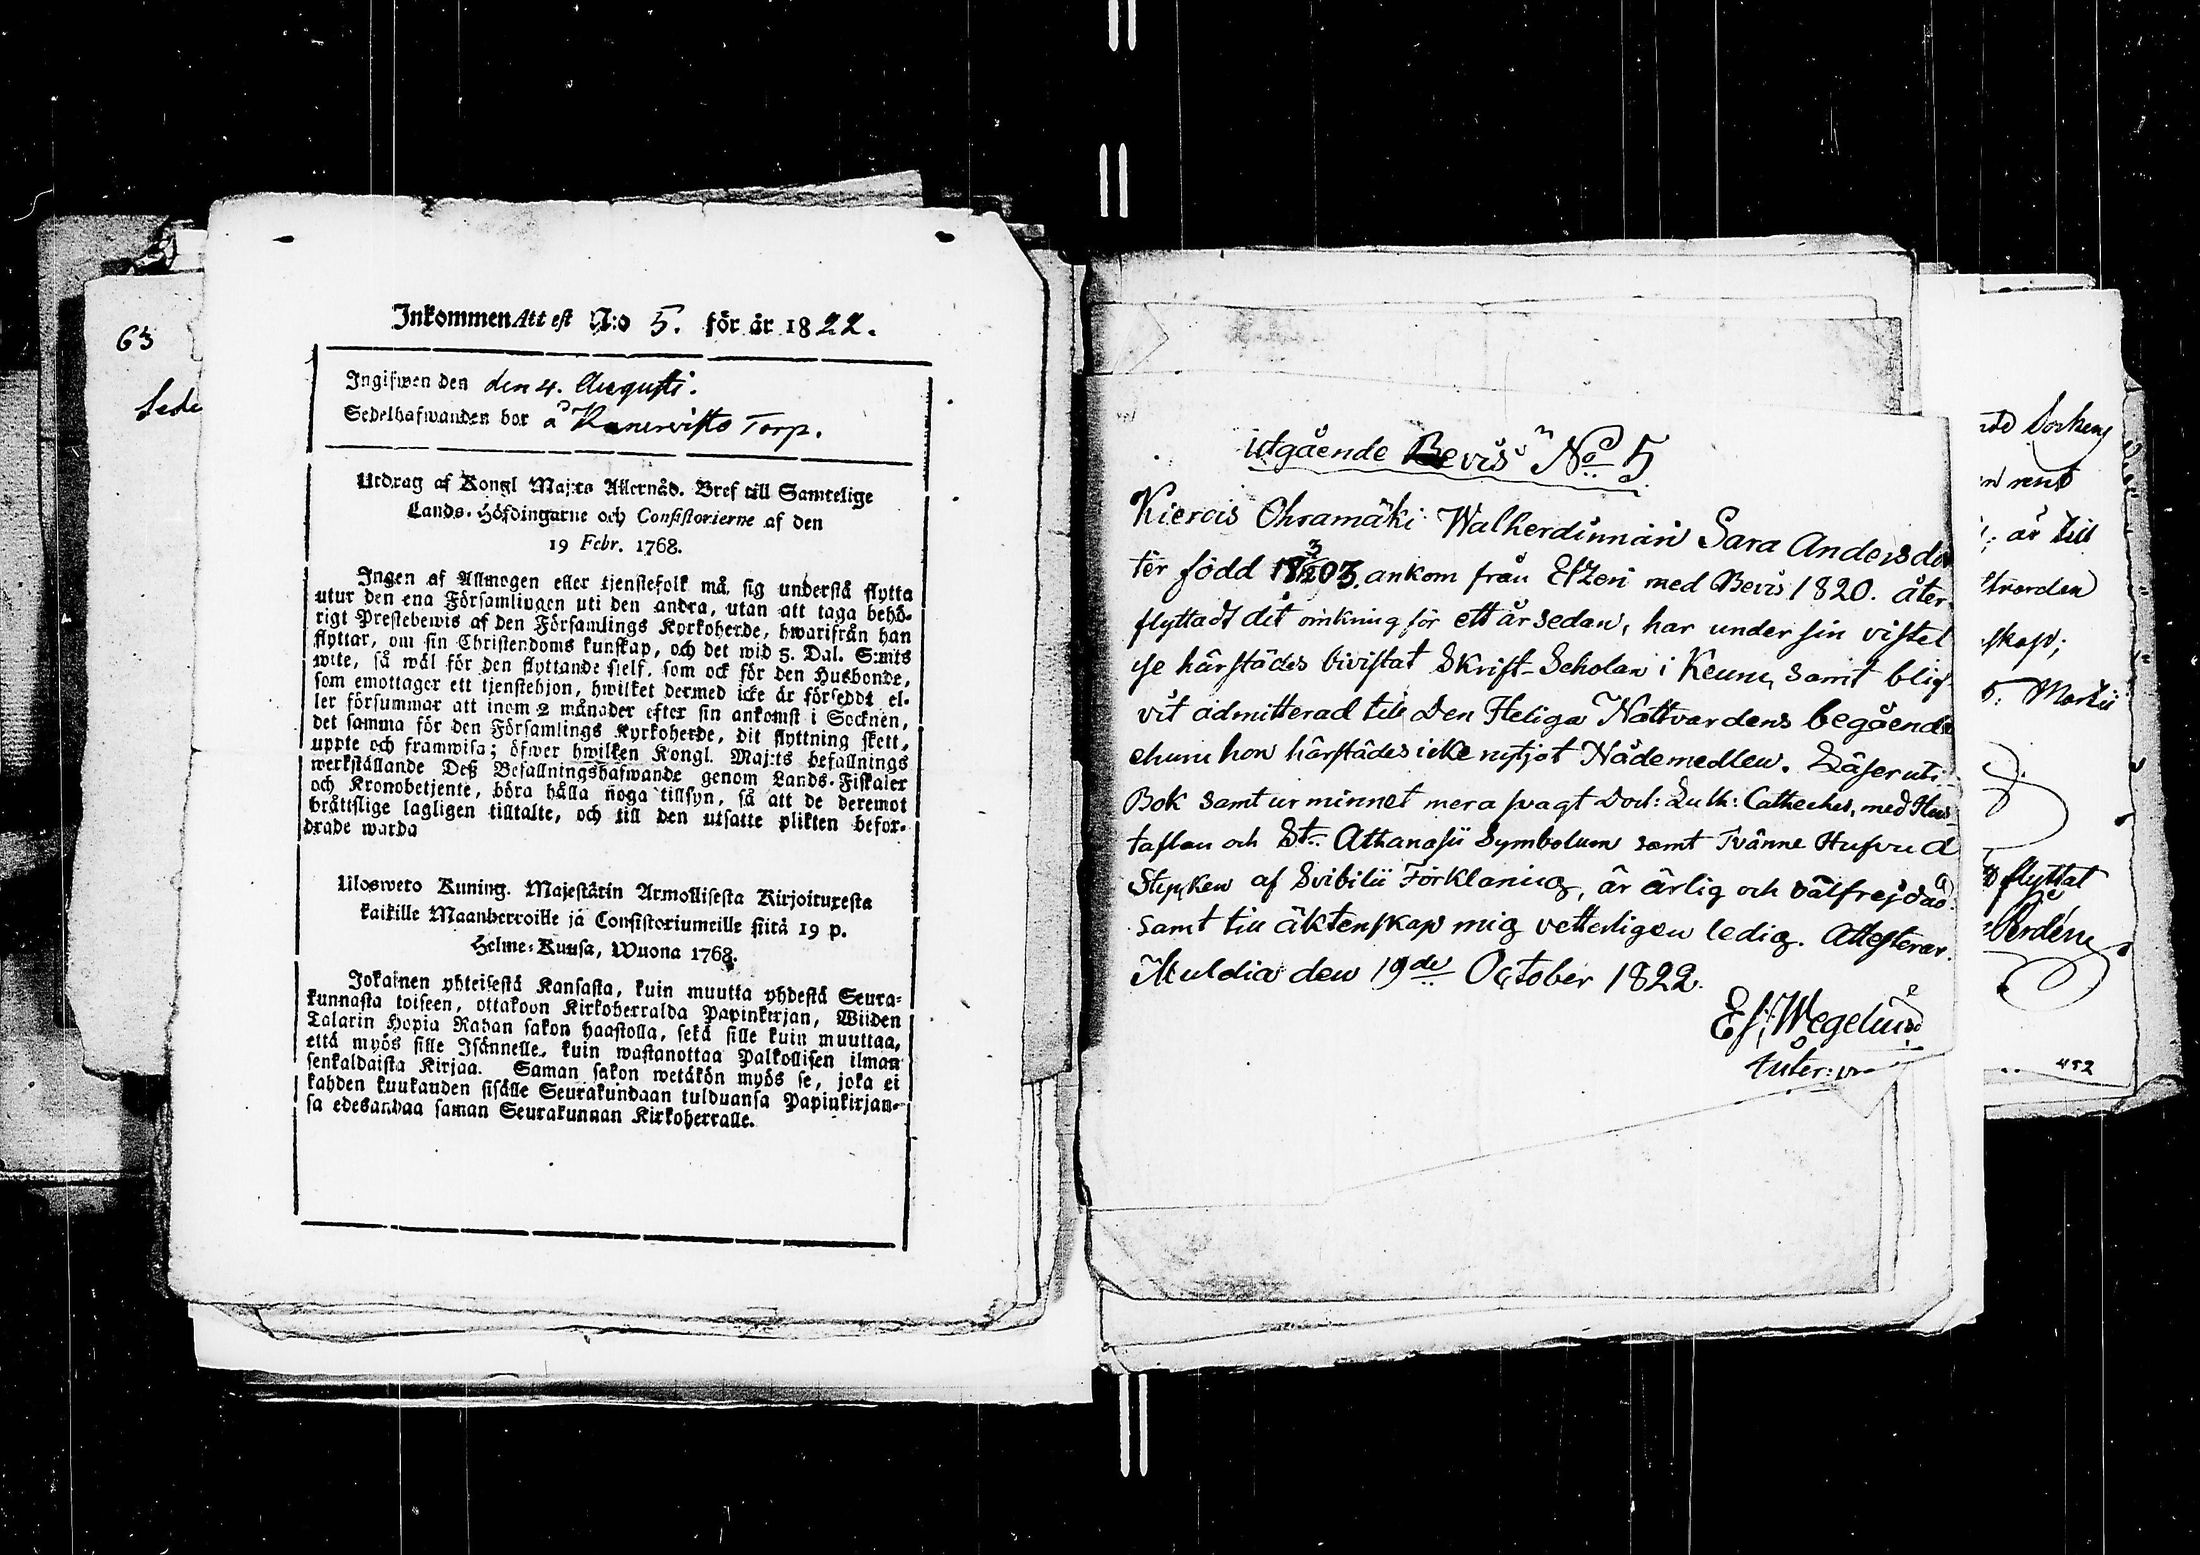 63
Sede
Inkommen Attest N:o 5. för år 1822.
Ingifwen den den 4. Augusti.
Sedelhafwanden bor å Kanervisto Torp.
Utdrag af Kongl Maj:ts Allernåd. Bref till Samtelige
Lands-Höfdingarne och Consistorierne af den
19 Febr. 1768.
Ingen af Allmogen eller tjenstefolk må sig understå flytta
utur den ena Församlingen uti den andra, utan att taga behö-
rigt Prestebewis af den Församlings Kyrkoherde, hwarifrån han
flyttar, om sin Christendoms kunskap, och det wid 5. Dal. S:mts
wite, så wäl för den flyttande sjelf, som ock för den Husbonde,
som emottager ett tjenstehjon, hwilket dermed icke är försedt el-
ler försummar att inom 2 månader efter sin ankomst i Socknen,
det samma för den Församlings Kyrkoherde, dit flyttning skett,
uppte och framwisa; öfwer hwilken Kongl. Maj:ts befallnings
werkställande Deß Befallningshafwande genom Lands-Fiskaler
och Kronobetjente, böra hålla noga tillsyn, så att de deremot
bråttslige lagligen tilltalte, och till den utsatte plikten befor-
drade warda
Ulosweto Kuning. Majestätin Armollisesta Kirjoituxesta
kaikille Maanherroille ja Consistoriumeille siitä 19 p.
Helme-Kuusa, Wuona 1768.
Jokainen yhteisestä Kansasta, kuin muutta yhdestä Seura-
kunnasta toiseen, ottakoon Kirkoherralda Papinkirjan, Wiiden
Talarin Hopia Rahan sakon haastolla, sekä sille kuin muuttaa,
että myös sille Isännelle, kuin wastanottaa Palkollisen ilman
senkaldaista Kirjaa. Saman sakon wetäkön myös se, joka ei
kahden kuukauden sisälle Seurakundaan tulduansa Papinkirjan-
sa edesanbaa saman Seurakunnan Kirkoherralle.
utgående Bevis No 5
Kierois Ohramäki Walherdinnan Sara Andersdot
ter född 18 3/12 03, ankom från Etzeri med Bevis 1820. åter-
flyttadt dit omkring för ett år sedan, har under sin vistel
se härstädes bivistat Skrift-Scholan i Keuru, samt blif-
vit admitterad till Den Heliga Nattvardens begående
ehuru hon härstädes icke nytjat Nådemedlen. Läser uti
Bok samt ur minnet mera svagt Doct: Luth: Catheches, med Hus-
taflan och St. Athanasii Symbolum samt Tvänne Hufvud
Stycken af Svibilii Förklaring, är ärlig och välfrejdad
samt till äktenskap mig vetterligen ledig. Attesterar.
Multia den 19de October 1822.
Es. Wegelius
rent
är till
skap;
Martii
flyttat
452